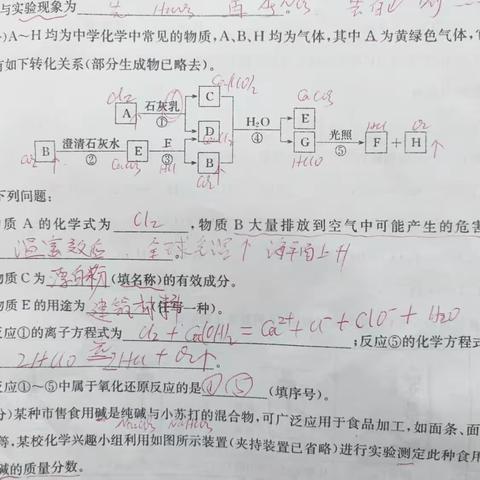 与实验现象为
)A～H 均为中学化学中常见的物质,A、B、H 均为气体,其中 A 为黄绿色气体,
有如下转化关系(部分生成物已略去)。
Cl₂ CaCO₃
A 石灰乳 ① C E HClO O₂
D H₂O ④ G 光照 ⑤ F + H ↑
B 澄清石灰水 ② E F ③ B
CO₂ CaCO₃ HCl CO₂ HClO
下列问题:
质 A 的化学式为 Cl₂ ,物质 B 大量排放到空气中可能产生的危害
温室效应 全球气温↑ 海平面上升
物质 C 为漂白粉(填名称)的有效成分。
物质 E 的用途为建筑材料(任写一种)。
反应①的离子方程式为 Cl₂ + Ca(OH)₂ = Ca²⁺ + Cl⁻ + ClO⁻ + H₂O ;反应⑤的化学方程式
2HClO 光 2HCl + O₂↑。
反应①～⑤中属于氧化还原反应的是①⑤(填序号)。
分)某种市售食用碱是纯碱与小苏打的混合物,可广泛应用于食品加工,如面条、面
Na₂CO₃ NaHCO₃
等,某校化学兴趣小组利用如图所示装置(夹持装置已省略)进行实验测定此种食用
碱的质量分数。